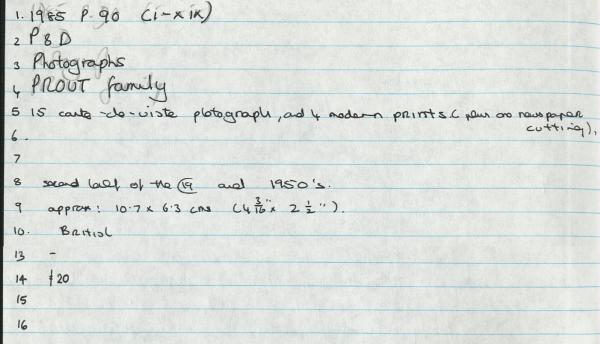 1. 1985 P. 90 (i-xix)
2 P&D
3 Photographs
4 PROUT family
5 15 carte-de-viste photograph, and 4 modern prints (plus one newspaper
cutting),
6.
7
8 second half of the 19 and 1950's.
9 approx: 10.7 x 6.3 cms (4 3/16" x 2 1/2").
10. British
13 -
14 £20
15
16